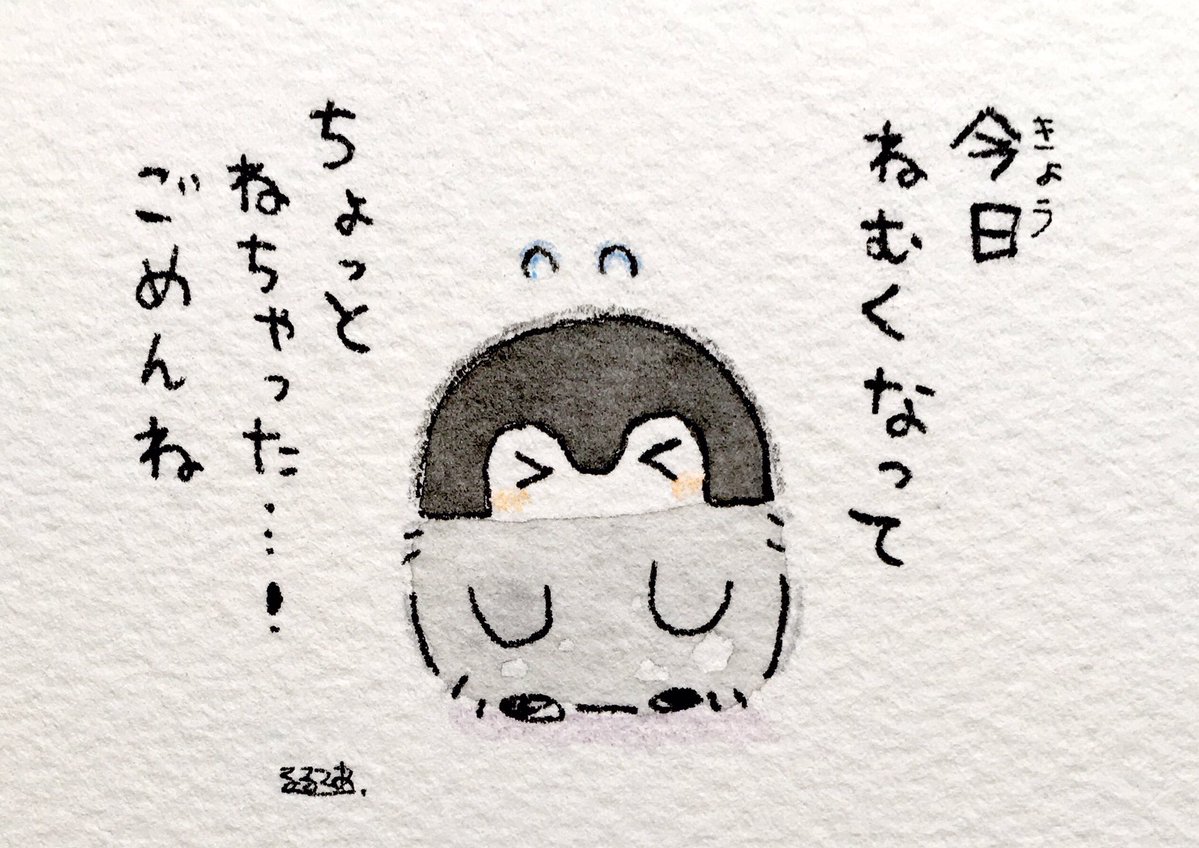 今日
きょう
ねむくなって
ちょっと
ねちゃった…!
ごめんね
るるてあ.